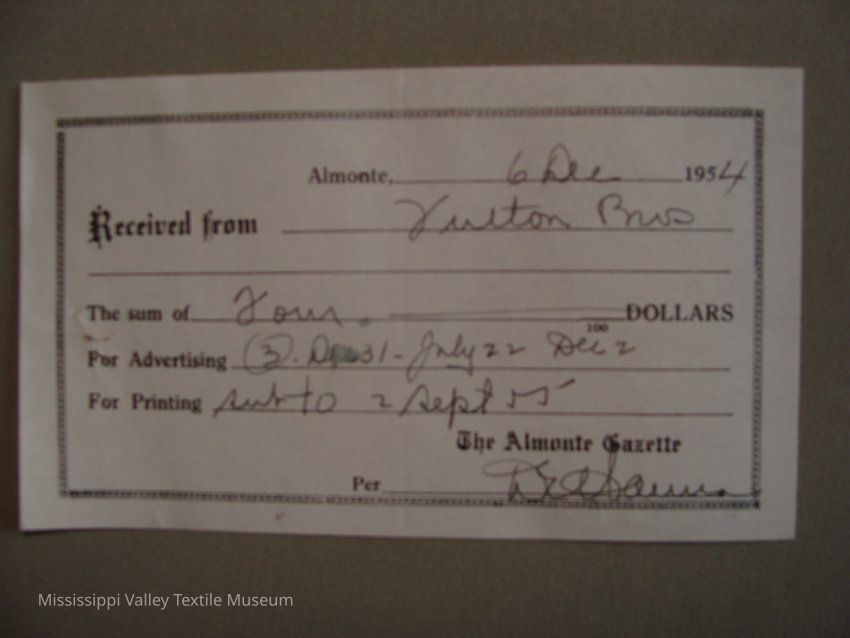 Almonte, 6 Dec 1954
Received from Fulton Bros
The sum of Four. 100 DOLLARS
For Advertising (3). 31 - July 22 Dec 2
For Printing sub to 2 Sept 55
The Almonte Gazette
Per
Mississippi Valley Textile Museum